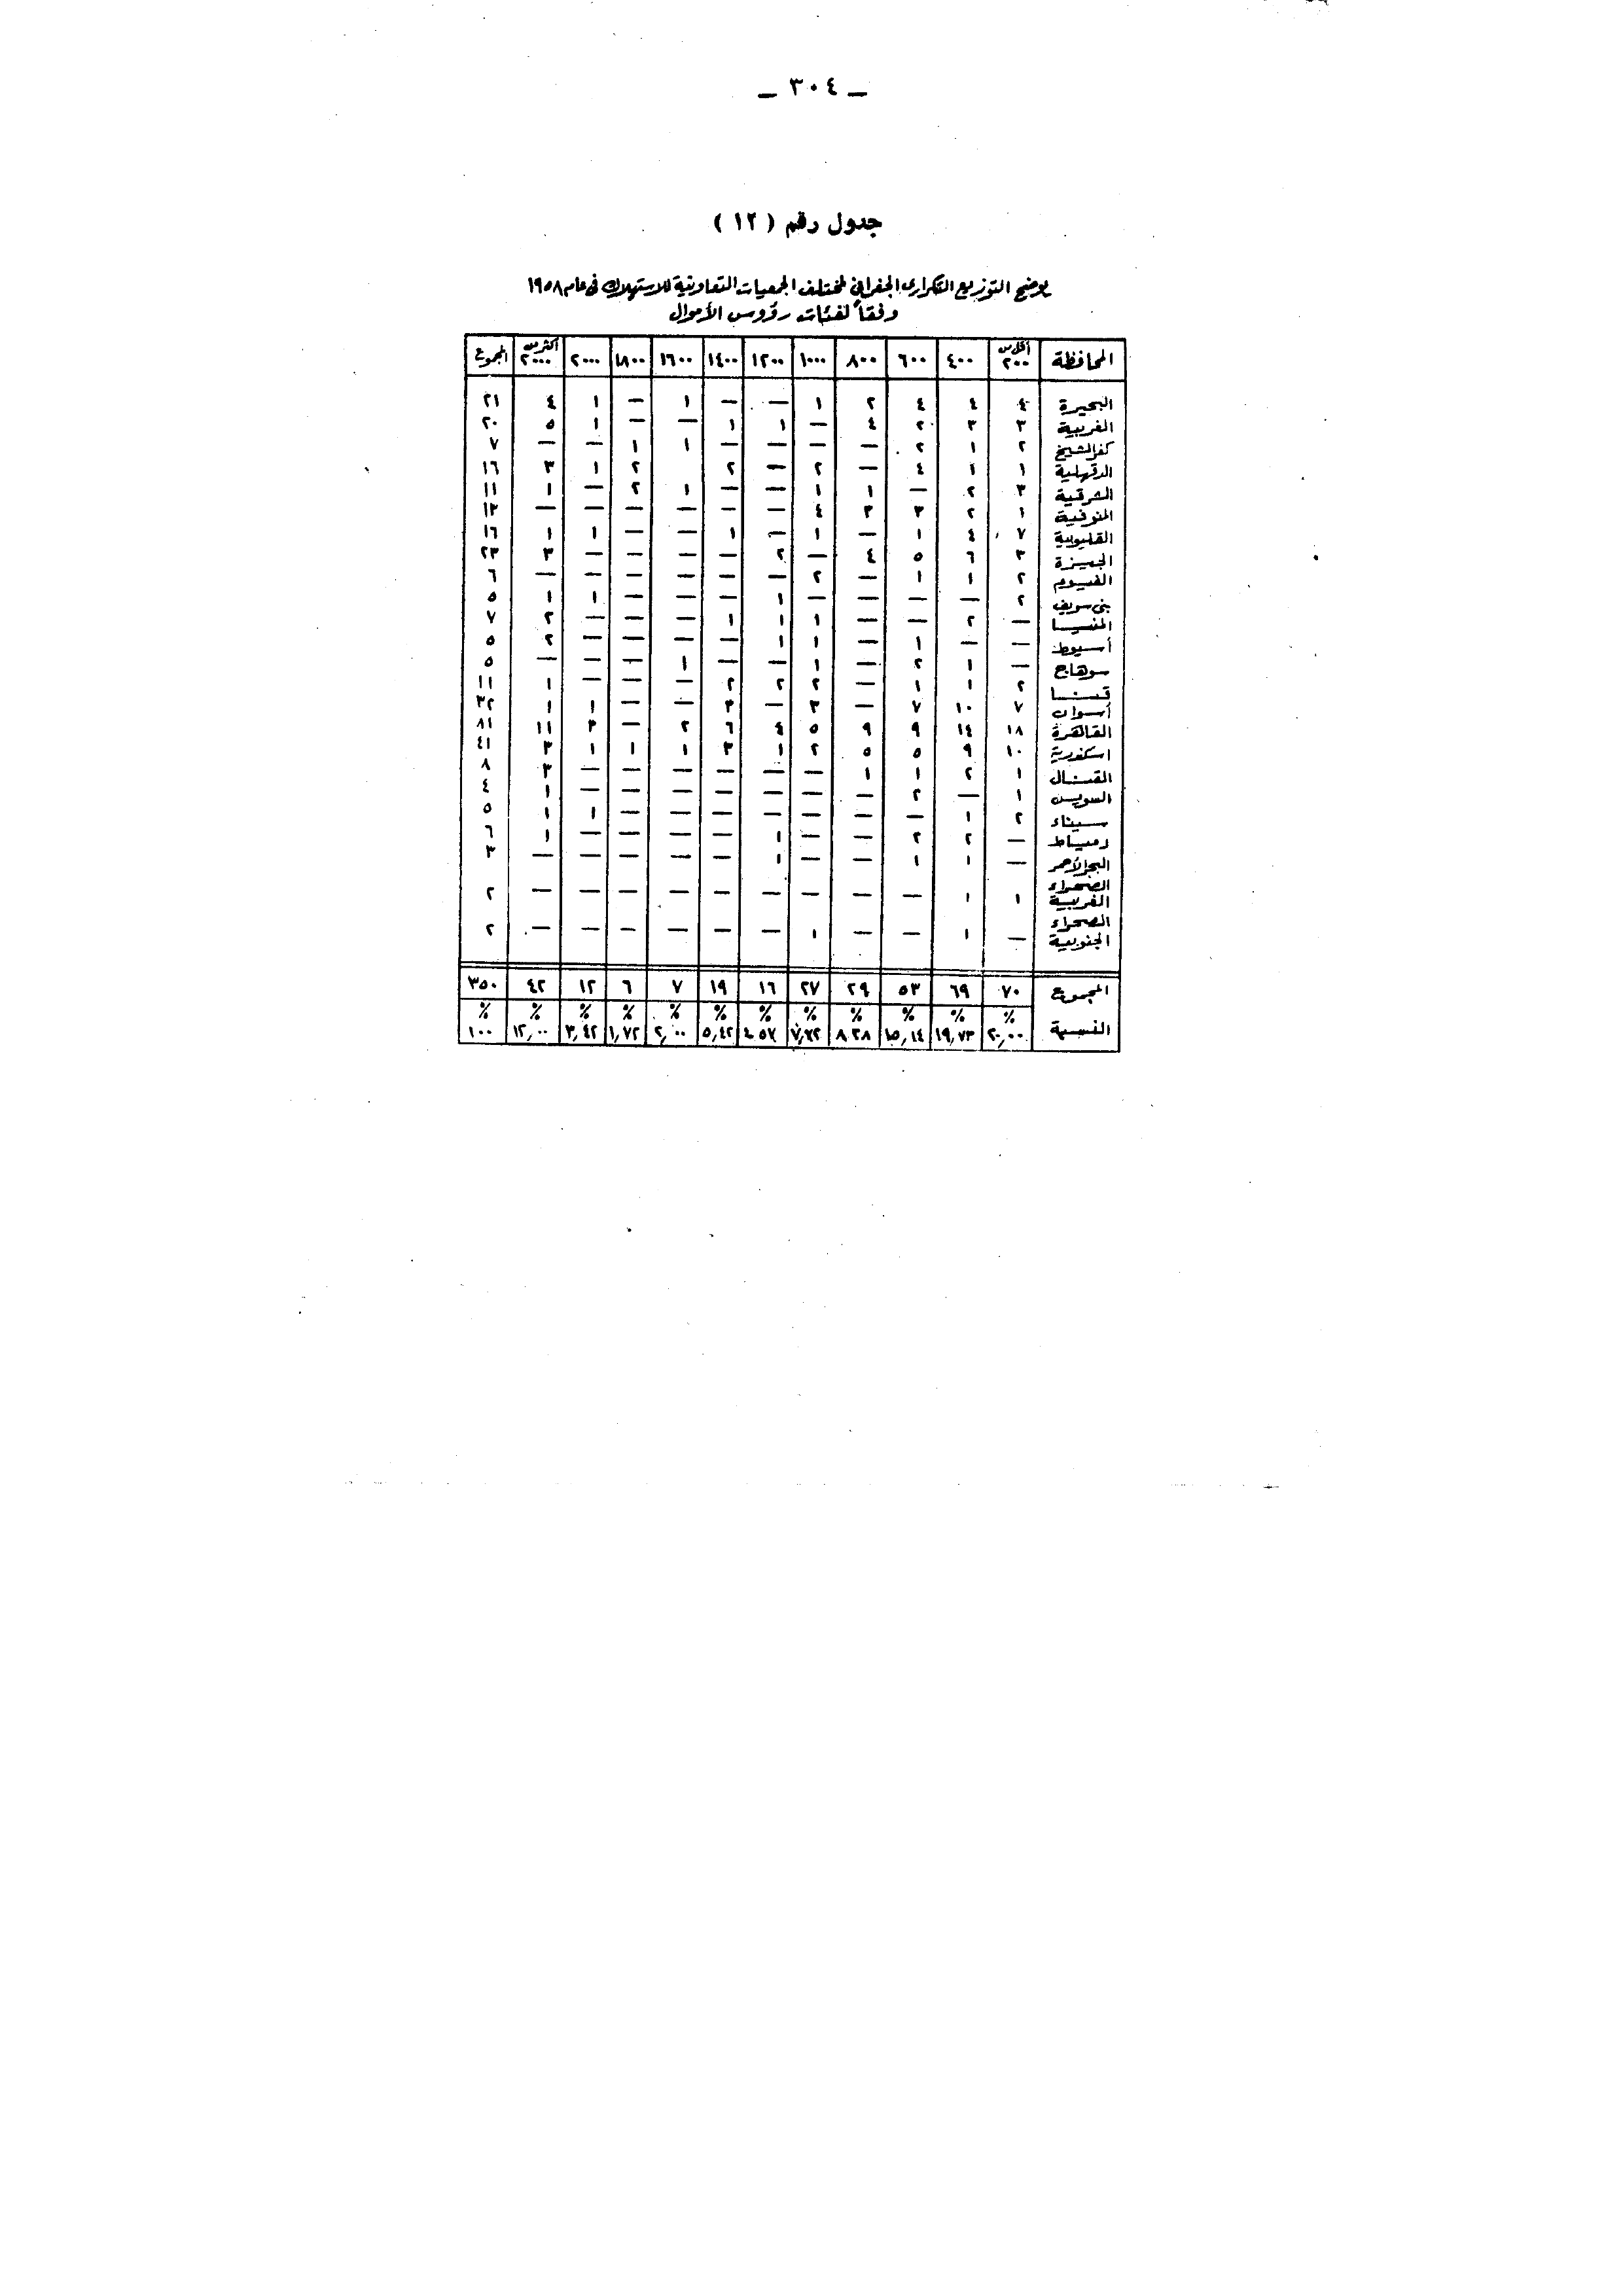 ـ ٣٠٤ ـ
جدول رقم ( ١٢ )
يوضح التوزيع التكرارى الجغرافى لمختلف الجمعيات التعاونية للاستهلاك فى عام ١٩٥٨
وفقاً لفئات رؤوس الأموال
المحافظة أقل من ٢٠٠ ٤٠٠ ٦٠٠ ٨٠٠ ١٠٠٠ ١٢٠٠ ١٤٠٠ ١٦٠٠ ١٨٠٠ ٢٠٠٠ أكثر من ٢٠٠٠ المجموع
البحيرة ٤ ٤ ٤ ٢ ١ — — ١ — ١ ٤ ٢١
الغربية ٣ ٣ ٢ ٤ — ١ ١ — — ١ ٥ ٢٠
كفر الشيخ ٢ ١ ٢ — — — — ١ ١ — — ٧
الدقهلية ١ ١ ٤ — ٢ — ٢ ٢ ١ ٣ ١٦
الشرقية ٣ ٢ — ١ ١ — — ١ ٢ — ١ ١١
المنوفية ١ ٢ ٣ ٣ ٤ — — — — — — ١٣
القليوبية ٧ ٤ ١ — ١ — ١ — — ١ ١ ١٦
الجيزة ٣ ٦ ٥ ٤ — ٢ — — — — ٣ ٢٣
الفيوم ٢ ١ ١ — ٢ — — — — — — ٦
بنى سويف ٢ — — — — ١ — — — ١ ١ ٥
المنيا — ٢ — — ١ ١ ١ — — — ٢ ٧
أسيوط — — ١ — ١ ١ — — — — ٢ ٥
سوهاج — ١ ٢ — ١ — — ١ — — — ٥
قنا ٢ ١ ١ — ٢ ٢ ٢ — — — ١ ١١
أسوان ٧ ١٠ ٧ — ٣ — ٣ — — ١ ١ ٣٢
القاهرة ١٨ ١٤ ٩ ٩ ٥ ٤ ٦ ٢ — ٣ ١١ ٨١
اسكندرية ١٠ ٩ ٥ ٥ ٢ ١ ٣ ١ ١ ١ ٣ ٤١
القنال ١ ٢ ١ ١ — — — — — — ٣ ٨
السويس ١ — ٢ — — — — — — — ١ ٤
سيناء ٢ ١ — — — — — — — ١ ١ ٥
دمياط — ٢ ٢ — — ١ — — — — ١ ٦
البحر الأحمر — ١ ١ — — ١ — — — — — ٣
الصحراء
الغربية ١ ١ — — — — — — — — — ٢
الصحراء
الجنوبية — ١ — — ١ — — — — — — ٢
المجموع ٧٠ ٦٩ ٥٣ ٢٩ ٢٧ ١٦ ١٩ ٧ ٦ ١٢ ٤٢ ٣٥٠
% % % % % % % % % % % %
النسبة ٢٠,٠٠ ١٩,٧٣ ١٥,١٤ ٨,٢٨ ٧,٦٢ ٤٥٧ ٥,٤٢ ٢,٠٠ ١,٧٢ ٣,٤٢ ١٢,٠٠ ١٠٠